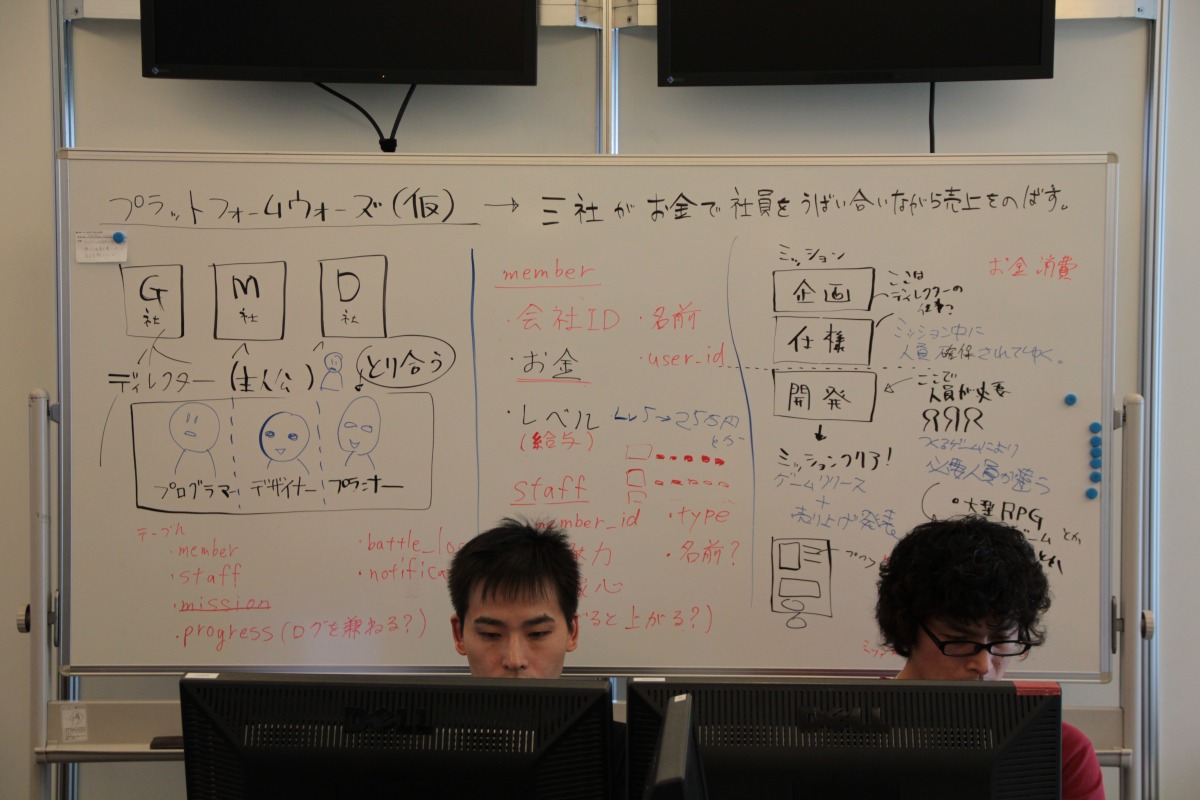 プラットフォームウォーズ(仮) → 三社がお金で社員をうばい合いながら売上をのばす。
G社
M社
D社
ディレクター(主人公)
とり合う
プログラマー
デザイナー
プランナー
テーブル
・member
・staff
・mission
・progress(ログを兼ねる?)
・battle_lo
・notifica
member
・会社ID
・名前
・お金
・user_id
・レベル
(給与)
Lv5→25万円
とか
staff
member_id
・type
力
・名前?
心
ると上がる?)
ミッション
お金消費
企画
ここは
ディレクターの
仕事?
仕様
ミッション中に
人員確保されてゆく。
開発
ここで
人員が必要
つくるゲームにより
必要人員が違う
ミッションクリア!
ゲームリリース
+
売り上げ発表
・大型RPG
ーム とか
DELL
DELL